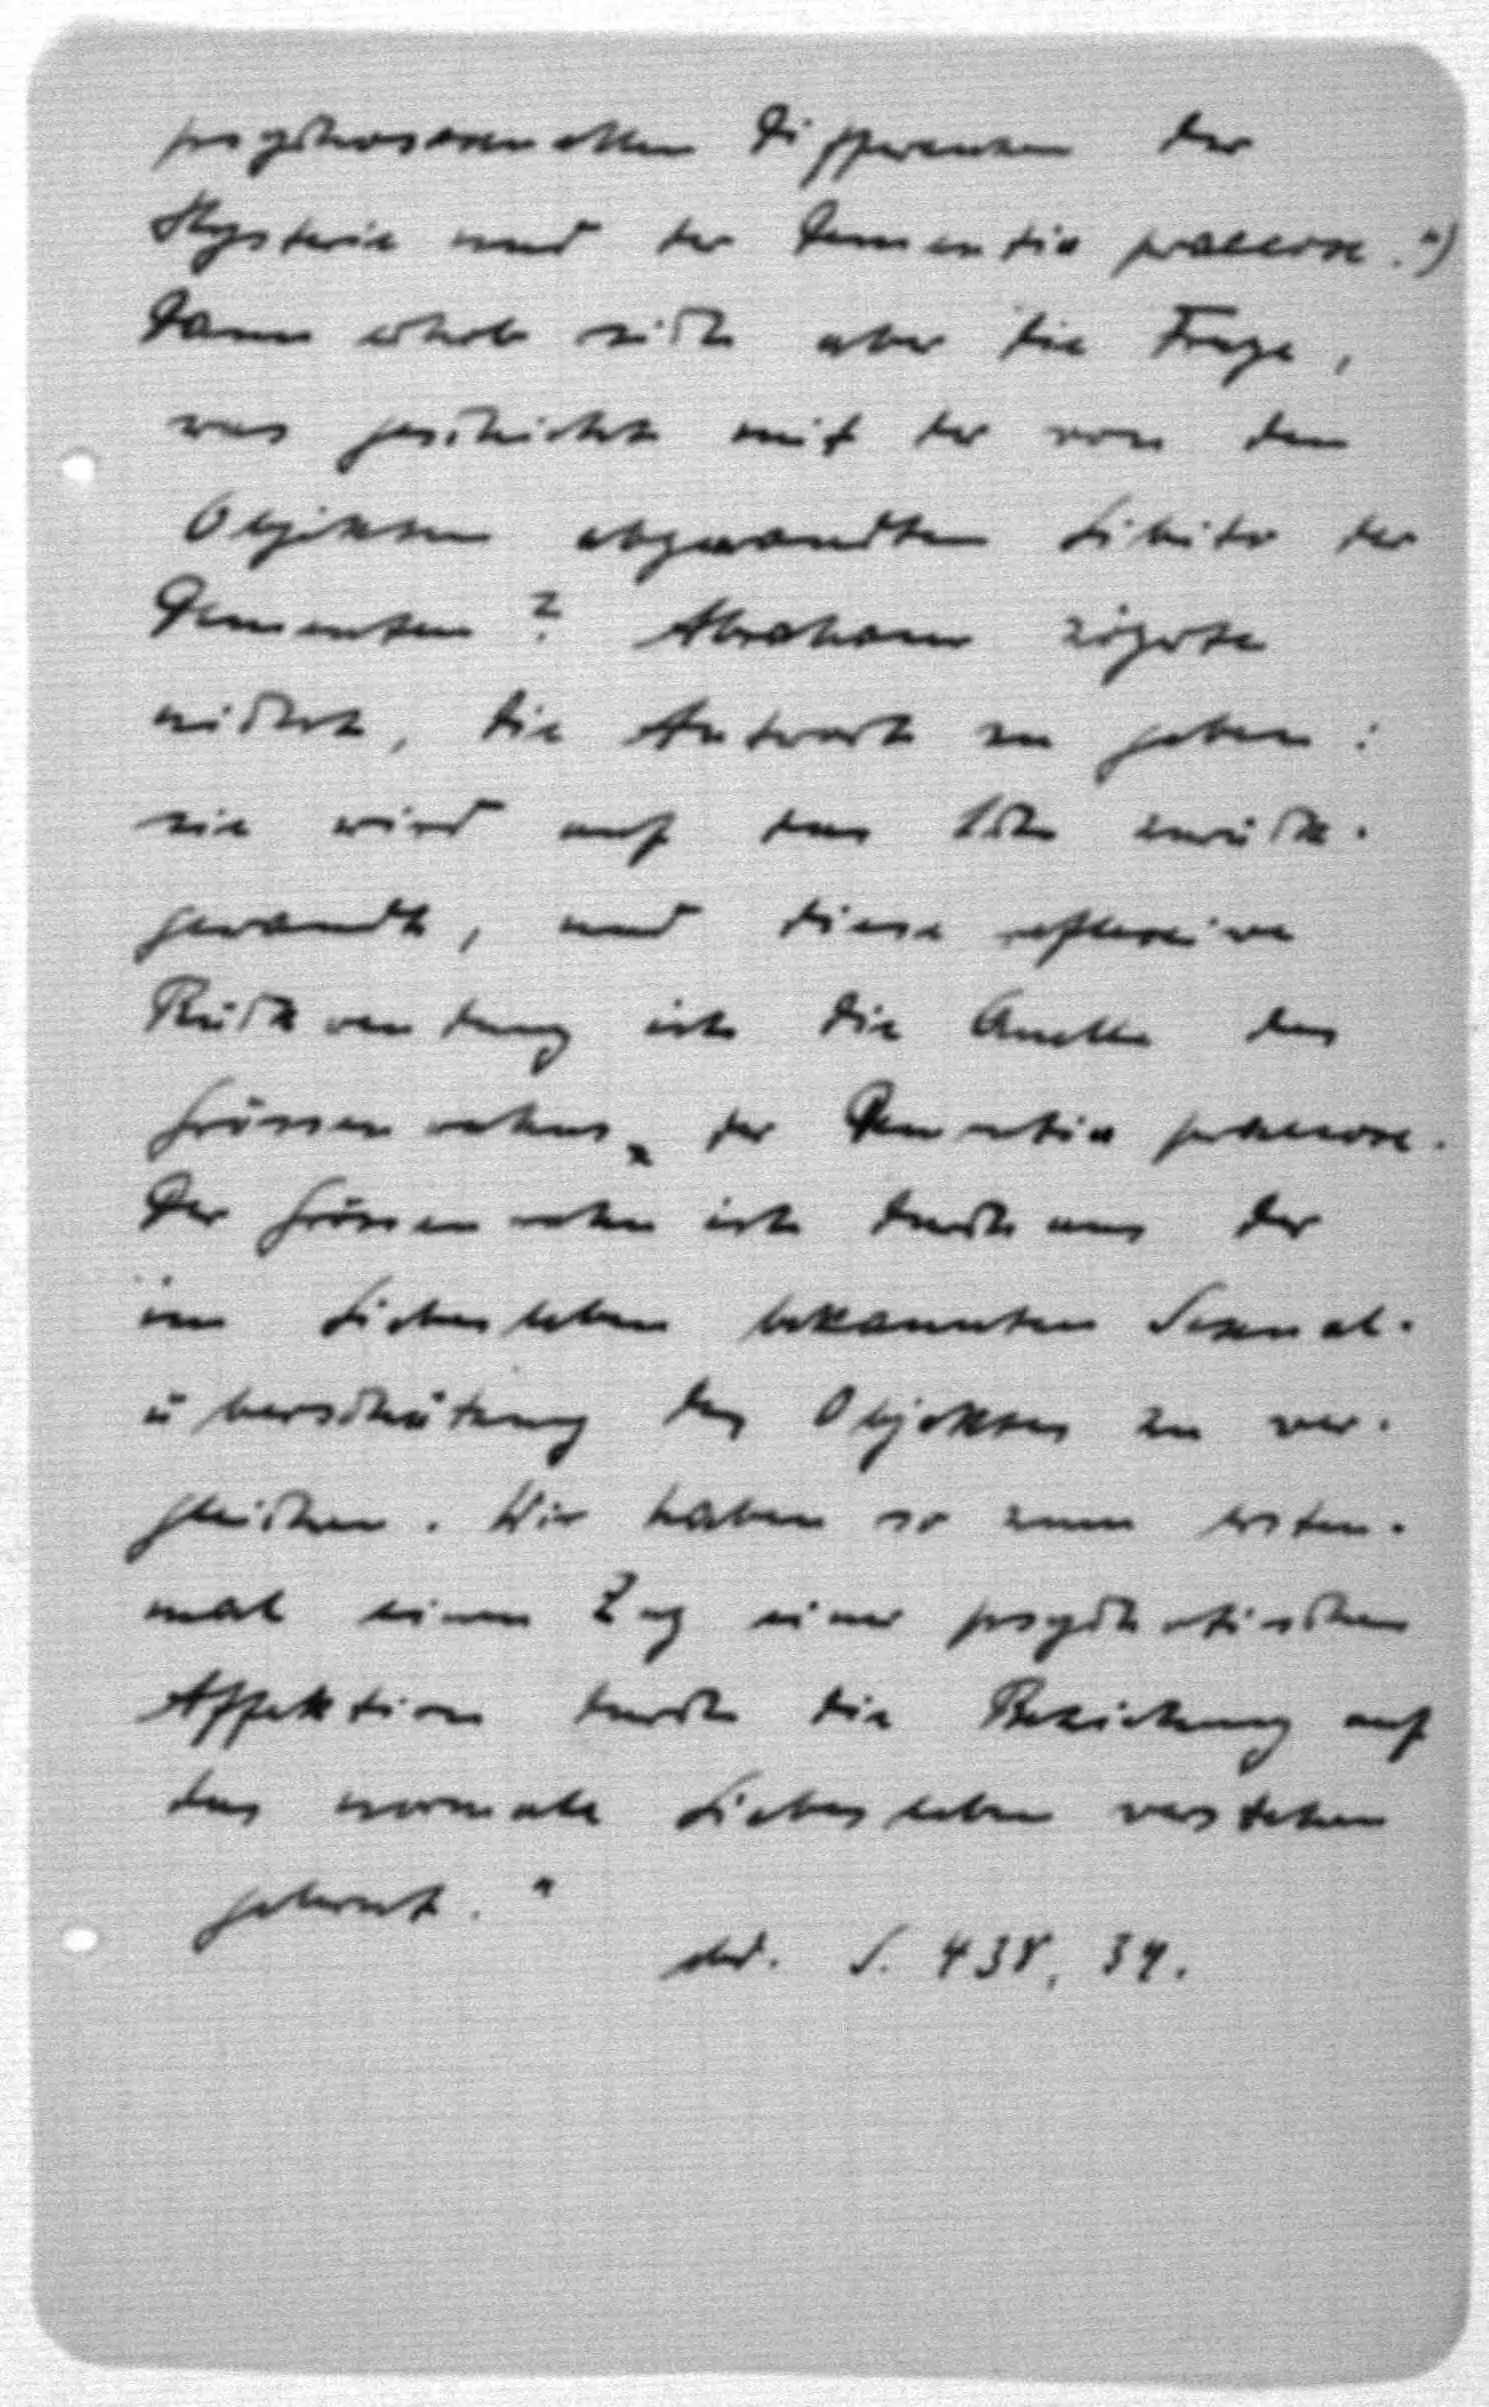 psychosexuellen Differenzen der
Hysterie und der Dementia praecox.")
Dann erhob sich aber die Frage,
was geschieht mit der von den
Objekten abgewandten Libido der
Dementen? Abraham zögerte
nicht, die Antwort zu geben:
sie wird auf das Ich zurück-
gewandt, und diese reflexive
Rückwendung ist die Quelle des
Grössenwahns der Dementia praecox.
Der Grössenwahn ist durchaus der
im Liebesleben bekannten Sexual-
überschätzung des Objektes zu ver-
gleichen. Wir haben so zum ersten-
mal einen Zug einer psychotischen
Affektion durch die Beziehung auf
das normale Liebesleben verstehen
gelernt."
ebd. S. 438, 39.